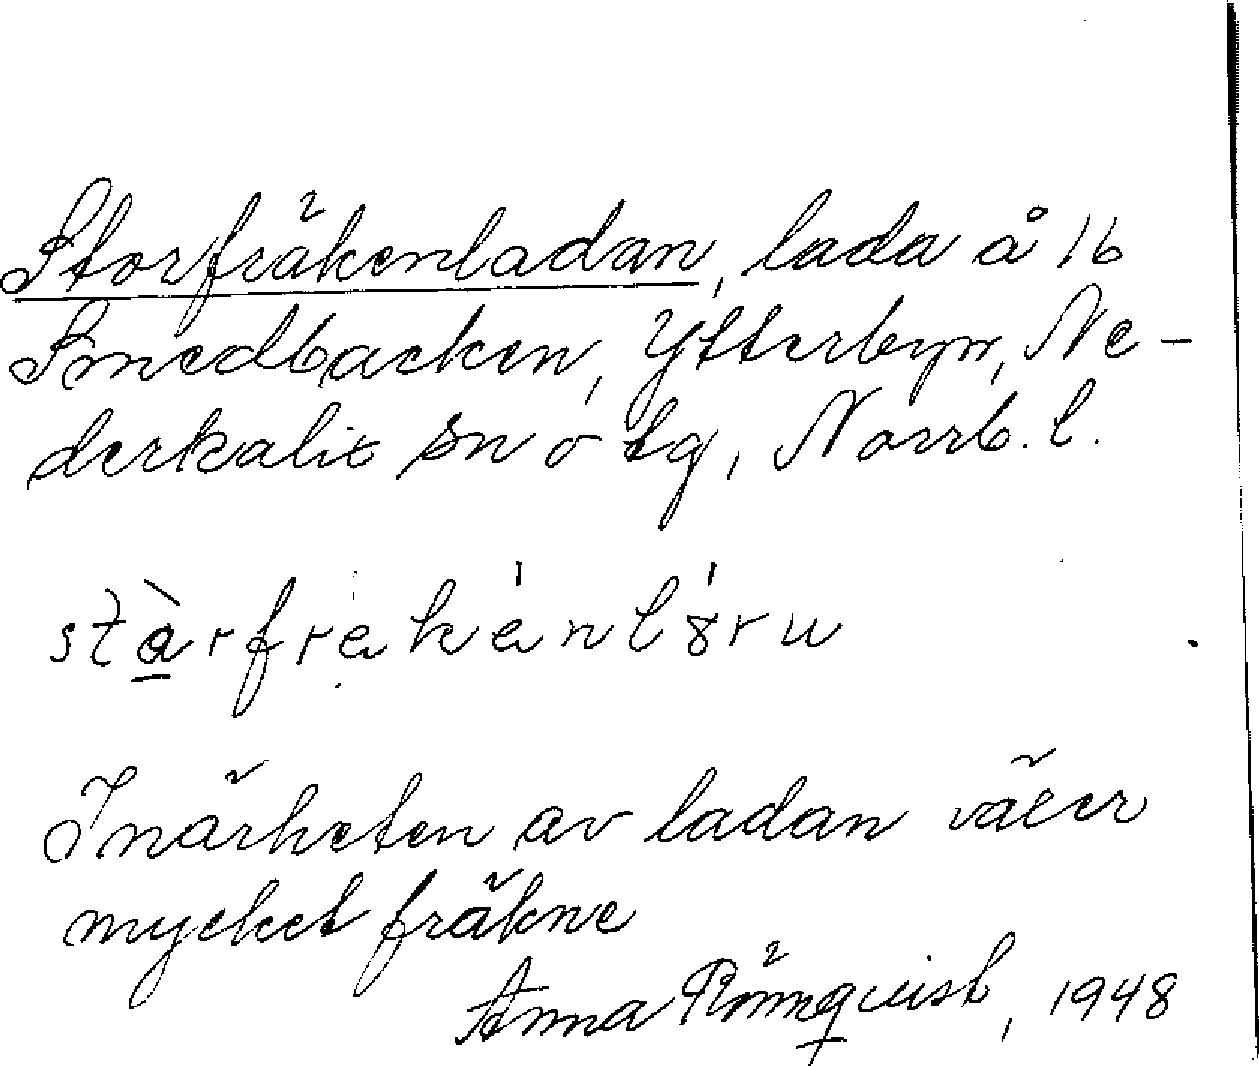 Storfräkenladan, lada å 16
Smedbacken, Ytterbyn, Ne-
derkalix sn o tg, Norrb. l.
stàrfrækénlóru
Inärheten av ladan växer
mycket fräkne
Anna Rönnqvist, 1948